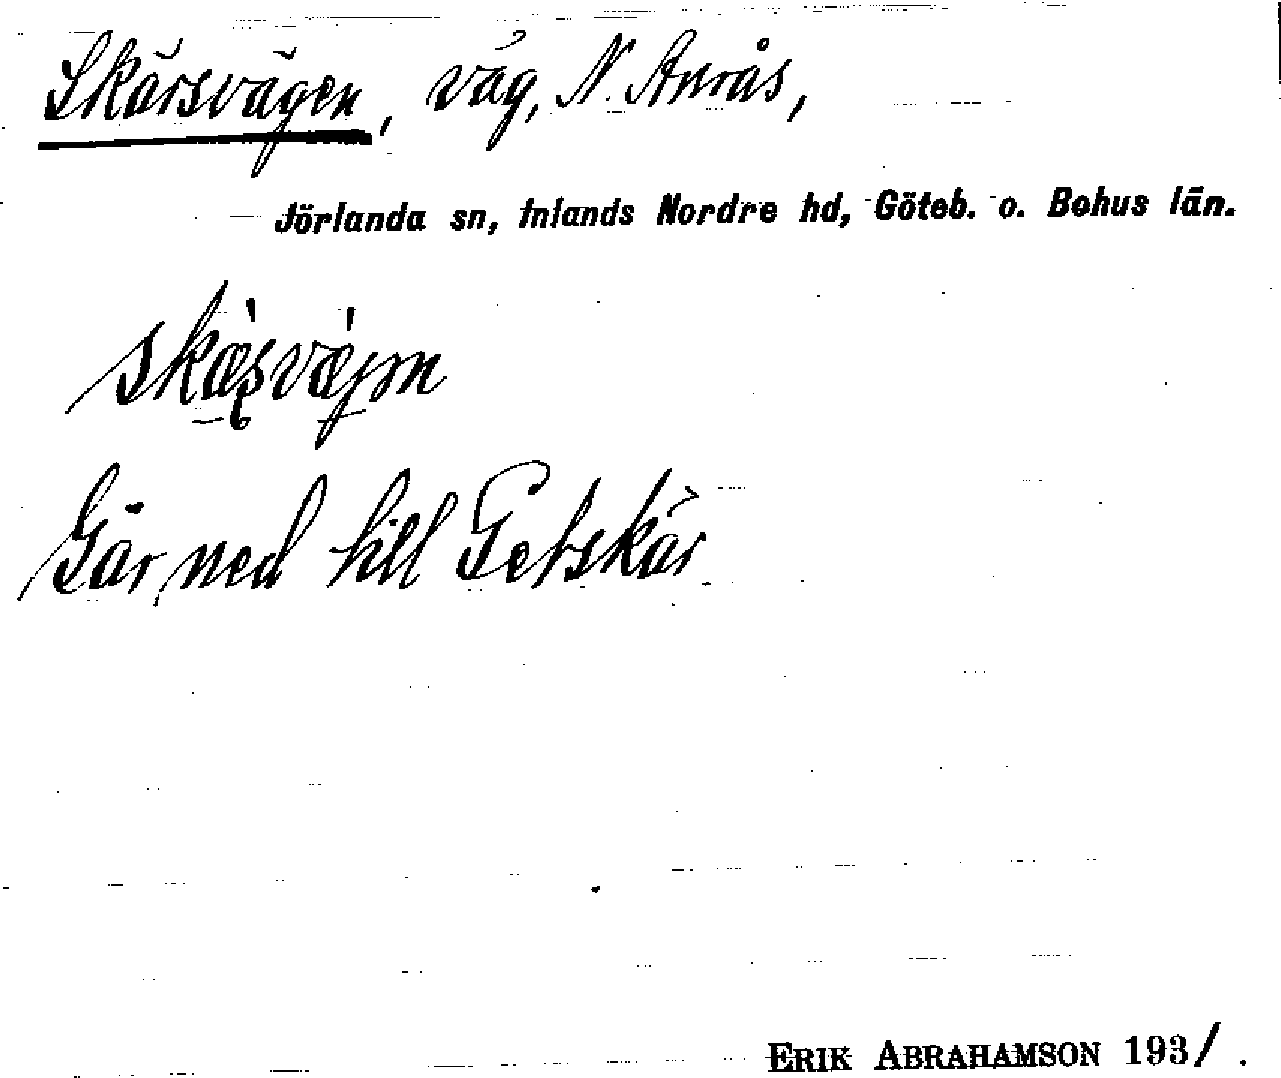 Skärsvägen, väg, N. Anrås,
Jörlanda sn, Inlands Nordre hd, Göteb. o. Bohus län.
Går ned till Getskär
ERIK ABRAHAMSON 1931.